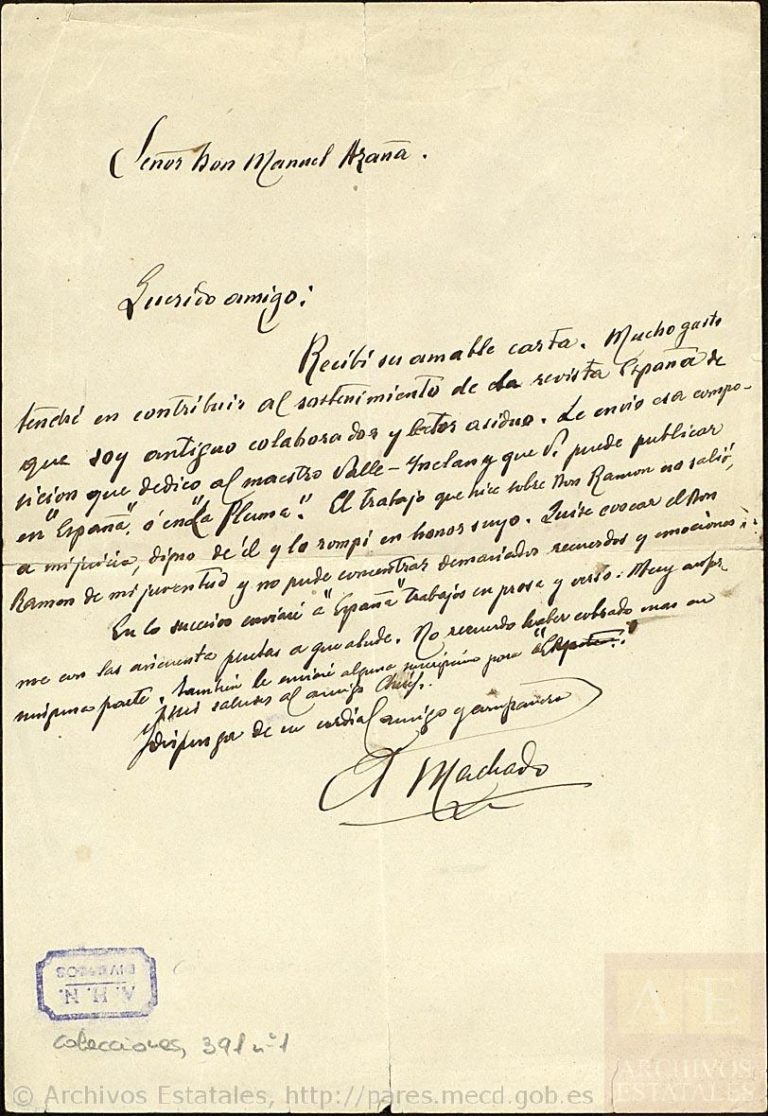 Señor Don Manuel Azaña.
Querido amigo:
Recibí su amable carta. Mucho gusto
tendré en contribuir al sostenimiento de la revista España de
que soy antiguo colaborador y lector asiduo. Le envio esa compo-
sicion que dedico al maestro Valle-Inclan y que V. puede publicar
en "España". ó en "La Pluma". El trabajo que hice sobre Don Ramon no salió,
a mi juicio, digno de él y lo rompí en honor suyo. Quise evocar el Don
Ramon de mi juventud y no pude concentrar demasiados recuerdos y emociones.
En lo sucesivo enviaré a "España" trabajos en prosa y verso. Muy
me con las cincuenta pesetas a que alude. No recuerdo haber cobrado mas en
ninguna parte. Tambien le enviaré alguna suscripcion para "España".
y mis saludos al amigo
disponga de su cordial amigo y compañero
A Machado
A. H. N.
DIVERSOS
colecciones, 391 nº 1
AE
ARCHIVOS
ESTATALES
© Archivos Estatales, http://pares.mecd.gob.es